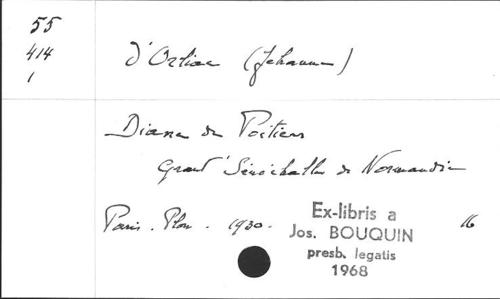 55
414
1
d'Orliac (Jehanne)
Diane de Poitiers
Grand' Sénéchalle de Normandie
Paris. Plon. 1930. 16
Ex-libris a
Jos. BOUQUIN
presb. legatis
1968